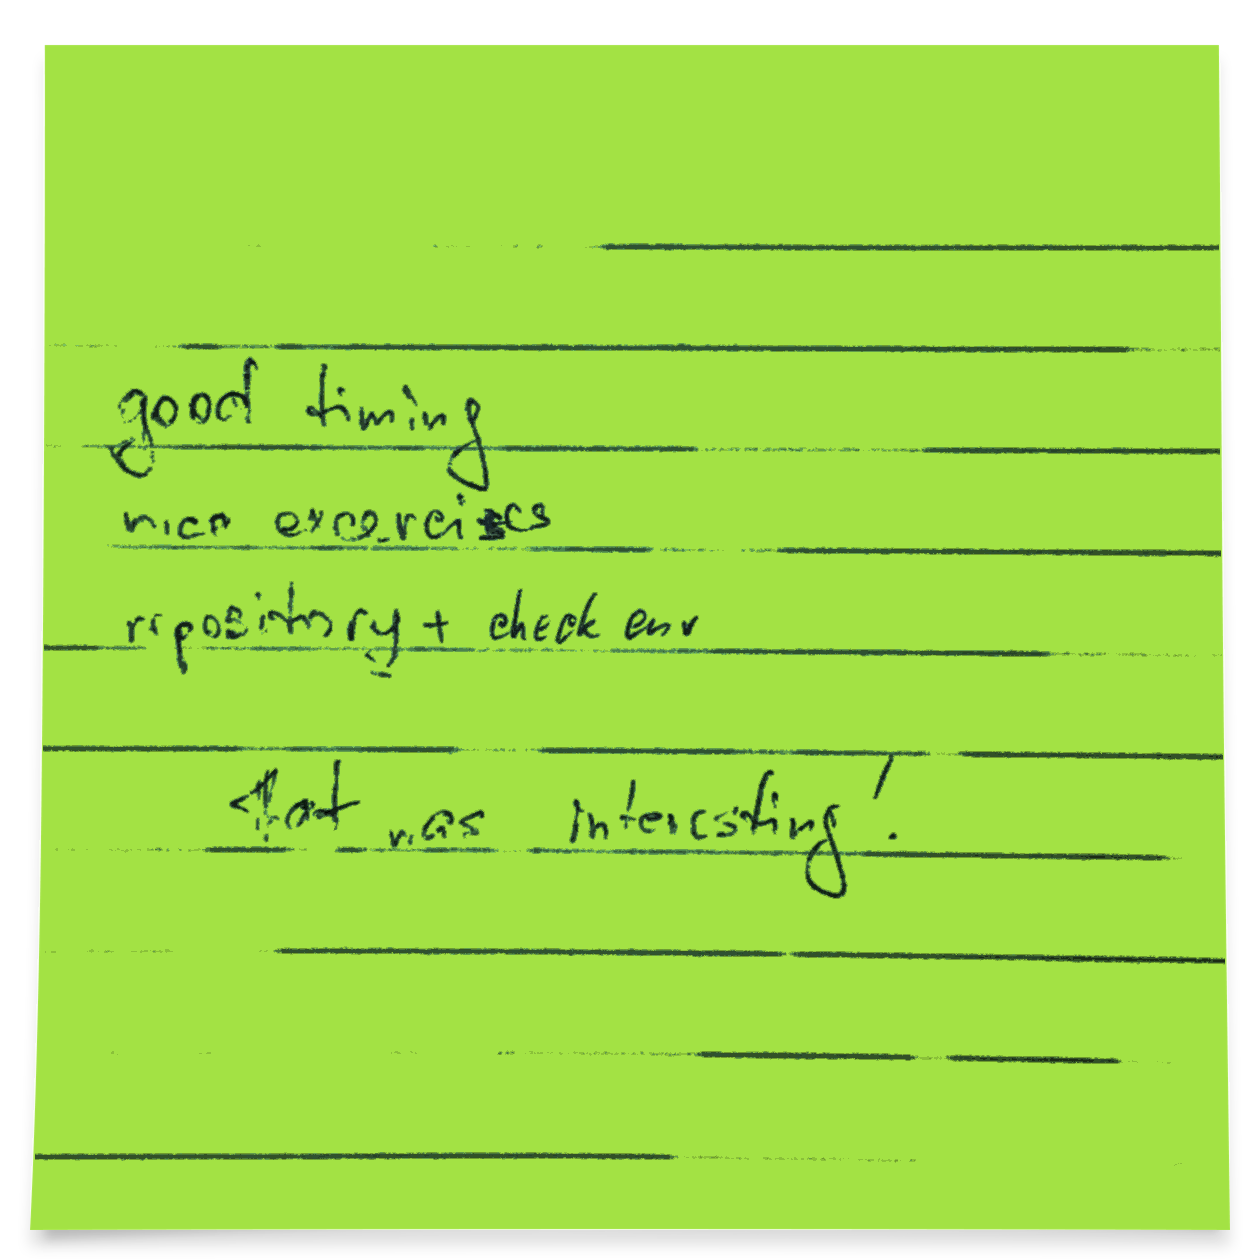 good timing
nice excercices
repository + check env
that was interesting!